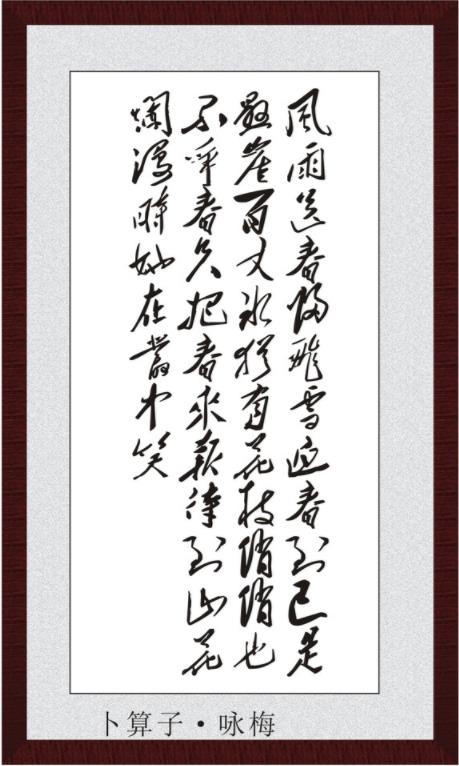 風雨送春歸飛雪迎春到已是
懸崖百丈冰猶有花枝俏俏也
不爭春只把春來報待到山花
爛漫時她在叢中笑
卜算子·咏梅